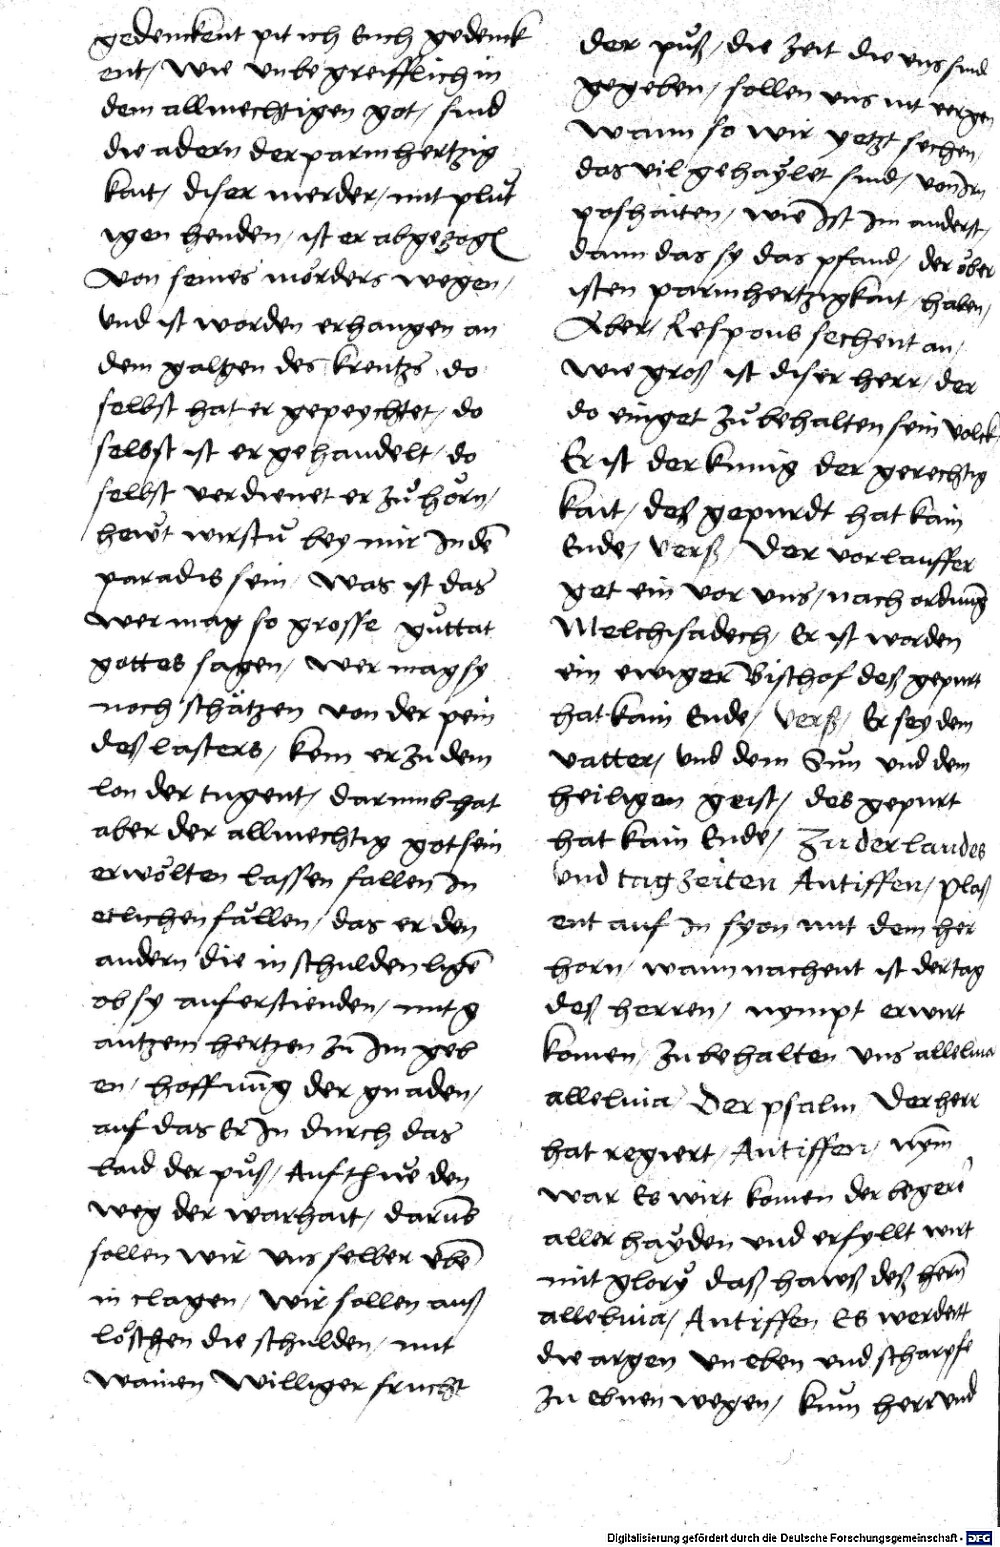 gedenckent pit ich Euch gedenck
ent / wie unbegreifflich in
dem allmechtigen got / sind
die adern der parmhertzig
kait / diser merder / mit plůt
igen henden / ist er abgezogē
von seines mörders wegen /
und ist worden erhangen an
dem galgen des kreutzs do
selbst hat er gepeychtet / do
selbst ist er gehandelt / do
selbst verdienet er zů hörn /
hewt wirstu bey mir In dē
paradis sein / Was ist das
wer mag so grosse gůttat
gottes sagen / wer mag sy
noch schätzen von der pein
deß lasters / kem er zu dem
lon der tugent / darumb hat
aber der allmechtig got sein
erwölten lassen fallen In
etlichen fällen / das er den
andern die in schulden ligē
ob sy auferstienden / mit g
antzem hertzen zu Im geb
en / hoffnūg der gnaden /
auf das Er In durch das
laid der půß / Aufthue den
weg der warhait / darumb
sollen wir uns selber ebē
in clagen / wir sollen auß
löschen die schulden / mit
wainen williger frucht
der půß / die zeit die uns sind
gegeben / sollen uns nit vergen
wann so wir yetzt sechen /
das vil gehaylet sind / von Irn
poshaiten / wie Ist Im anderst /
dann das sy das pfand / der ober
isten parmhertzigkait / haben /
Aber / Respons sechent an /
wie groß ist diser herr / der
do einget zů behalten sein volck
Er ist der kunig der gerechtig
kait / deß gepurdt hat kain
Ende / Verß / Der vorlauffer
get ein vor uns / nach ordnūg
Melchisadech / Er ist worden
ein ewiger Bischof deß gepurt
hat kain Ende / Verß / Er sey dem
vatter / und dem Sun und dem
heiligen geist / des gepurt
hat kain Ende / Zu der laudes
und tagzeiten Antiffen / Plaß
ent auf in syon mit dem her
horn / wann nachent ist der tag
deß herren / nympt er wirt
komen / zu behalten uns alleluia
alleluia Der psalm Der herr
hat regiert / Antiffen / Nym
war Es wirt komen der begert
aller hayden und erfyllt wirt
mit glory daß hawß deß herñ
alleluia / Antiffen Es werdent
die argen un eben und scharpfe
zu ebnen wegen / kum herr und
Digitalisierung gefördert durch die Deutsche Forschungsgemeinschaft - DFG